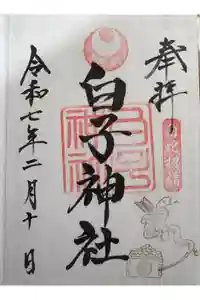 奉拝
白子神社
令和七年二月十日